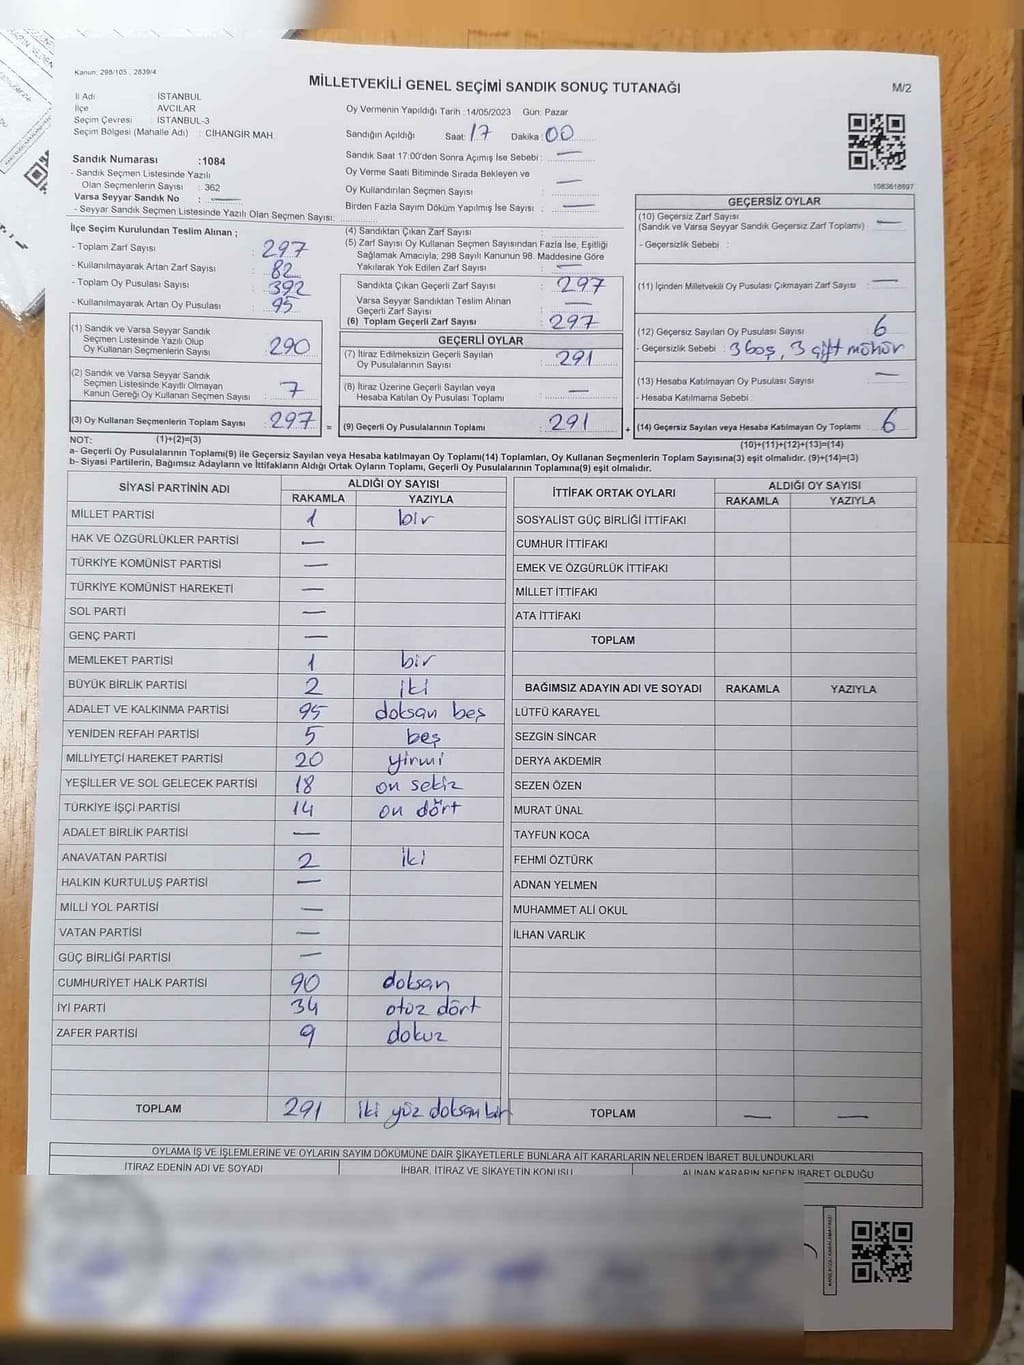 Kanun: 298/105 , 2839/4
MİLLETVEKİLİ GENEL SEÇİMİ SANDIK SONUÇ TUTANAĞI
M/2
İl Adı : İSTANBUL
İlçe : AVCILAR
Seçim Çevresi : İSTANBUL-3
Seçim Bölgesi (Mahalle Adı) : CİHANGİR MAH.
Oy Vermenin Yapıldığı Tarih : 14/05/2023 Gün: Pazar
Sandığın Açıldığı Saat: 17 Dakika : 00
Sandık Saat 17:00'den Sonra Açımış İse Sebebi : —
Oy Verme Saati Bitiminde Sırada Bekleyen ve
Oy Kullandırılan Seçmen Sayısı : —
Birden Fazla Sayım Döküm Yapılmış İse Sayısı : —
Sandık Numarası :1084
- Sandık Seçmen Listesinde Yazılı
Olan Seçmenlerin Sayısı : 362
Varsa Seyyar Sandık No : —
- Seyyar Sandık Seçmen Listesinde Yazılı Olan Seçmen Sayısı:
1083618897
İlçe Seçim Kurulundan Teslim Alınan ;
- Toplam Zarf Sayısı : 297
- Kullanılmayarak Artan Zarf Sayısı : 82
- Toplam Oy Pusulası Sayısı : 392
- Kullanılmayarak Artan Oy Pusulası : 95
(1) Sandık ve Varsa Seyyar Sandık
Seçmen Listesinde Yazılı Olup
Oy Kullanan Seçmenlerin Sayısı : 290
(2) Sandık ve Varsa Seyyar Sandık
Seçmen Listesinde Kayıtlı Olmayan
Kanun Gereği Oy Kullanan Seçmen Sayısı : 7
(3) Oy Kullanan Seçmenlerin Toplam Sayısı : 297 =
(4) Sandıktan Çıkan Zarf Sayısı :
(5) Zarf Sayısı Oy Kullanan Seçmen Sayısından Fazla İse, Eşitliği
Sağlamak Amacıyla; 298 Sayılı Kanunun 98. Maddesine Göre
Yakılarak Yok Edilen Zarf Sayısı : —
Sandıkta Çıkan Geçerli Zarf Sayısı : 297
Varsa Seyyar Sandıktan Teslim Alınan
Geçerli Zarf Sayısı : —
(6) Toplam Geçerli Zarf Sayısı : 297
GEÇERLİ OYLAR
(7) İtiraz Edilmeksizin Geçerli Sayılan
Oy Pusulalarının Sayısı : 291
(8) İtiraz Üzerine Geçerli Sayılan veya
Hesaba Katılan Oy Pusulası Toplamı : —
(9) Geçerli Oy Pusulalarının Toplamı : 291 +
GEÇERSİZ OYLAR
(10) Geçersiz Zarf Sayısı
(Sandık ve Varsa Seyyar Sandık Geçersiz Zarf Toplamı) : —
- Geçersizlik Sebebi :
(11) İçinden Milletvekili Oy Pusulası Çıkmayan Zarf Sayısı : —
(12) Geçersiz Sayılan Oy Pusulası Sayısı : 6
- Geçersizlik Sebebi : 3 boş, 3 çift mühür
(13) Hesaba Katılmayan Oy Pusulası Sayısı : —
- Hesaba Katılmama Sebebi :
(14) Geçersiz Sayılan veya Hesaba Katılmayan Oy Toplamı : 6
NOT: (1)+(2)=(3)
(10)+(11)+(12)+(13)=(14)
a- Geçerli Oy Pusulalarının Toplamı(9) ile Geçersiz Sayılan veya Hesaba katılmayan Oy Toplamı(14) Toplamları, Oy Kullanan Seçmenlerin Toplam Sayısına(3) eşit olmalıdır. (9)+(14)=(3)
b- Siyasi Partilerin, Bağımsız Adayların ve İttifakların Aldığı Ortak Oyların Toplamı, Geçerli Oy Pusulalarının Toplamına(9) eşit olmalıdır.
SİYASİ PARTİNİN ADI ALDIĞI OY SAYISI
RAKAMLA YAZIYLA
MİLLET PARTİSİ 1 bir
HAK VE ÖZGÜRLÜKLER PARTİSİ —
TÜRKİYE KOMÜNİST PARTİSİ —
TÜRKİYE KOMÜNİST HAREKETİ —
SOL PARTİ —
GENÇ PARTİ —
MEMLEKET PARTİSİ 1 bir
BÜYÜK BİRLİK PARTİSİ 2 iki
ADALET VE KALKINMA PARTİSİ 95 doksan beş
YENİDEN REFAH PARTİSİ 5 beş
MİLLİYETÇİ HAREKET PARTİSİ 20 yirmi
YEŞİLLER VE SOL GELECEK PARTİSİ 18 on sekiz
TÜRKİYE İŞÇİ PARTİSİ 14 on dört
ADALET BİRLİK PARTİSİ —
ANAVATAN PARTİSİ 2 iki
HALKIN KURTULUŞ PARTİSİ —
MİLLİ YOL PARTİSİ —
VATAN PARTİSİ —
GÜÇ BİRLİĞİ PARTİSİ —
CUMHURİYET HALK PARTİSİ 90 doksan
İYİ PARTİ 34 otuz dört
ZAFER PARTİSİ 9 dokuz
TOPLAM 291 iki yüz doksan bir
İTTİFAK ORTAK OYLARI ALDIĞI OY SAYISI
RAKAMLA YAZIYLA
SOSYALİST GÜÇ BİRLİĞİ İTTİFAKI
CUMHUR İTTİFAKI
EMEK VE ÖZGÜRLÜK İTTİFAKI
MİLLET İTTİFAKI
ATA İTTİFAKI
TOPLAM
BAĞIMSIZ ADAYIN ADI VE SOYADI RAKAMLA YAZIYLA
LÜTFÜ KARAYEL
SEZGİN SİNCAR
DERYA AKDEMİR
SEZEN ÖZEN
MURAT ÜNAL
TAYFUN KOCA
FEHMİ ÖZTÜRK
ADNAN YELMEN
MUHAMMET ALİ OKUL
İLHAN VARLIK
TOPLAM — —
OYLAMA İŞ VE İŞLEMLERİNE VE OYLARIN SAYIM DÖKÜMÜNE DAİR ŞİKAYETLERLE BUNLARA AİT KARARLARIN NELERDEN İBARET BULUNDUKLARI
İTİRAZ EDENİN ADI VE SOYADI İHBAR, İTİRAZ VE ŞİKAYETİN KONUSU ALINAN KARARIN NEDEN İBARET OLDUĞU